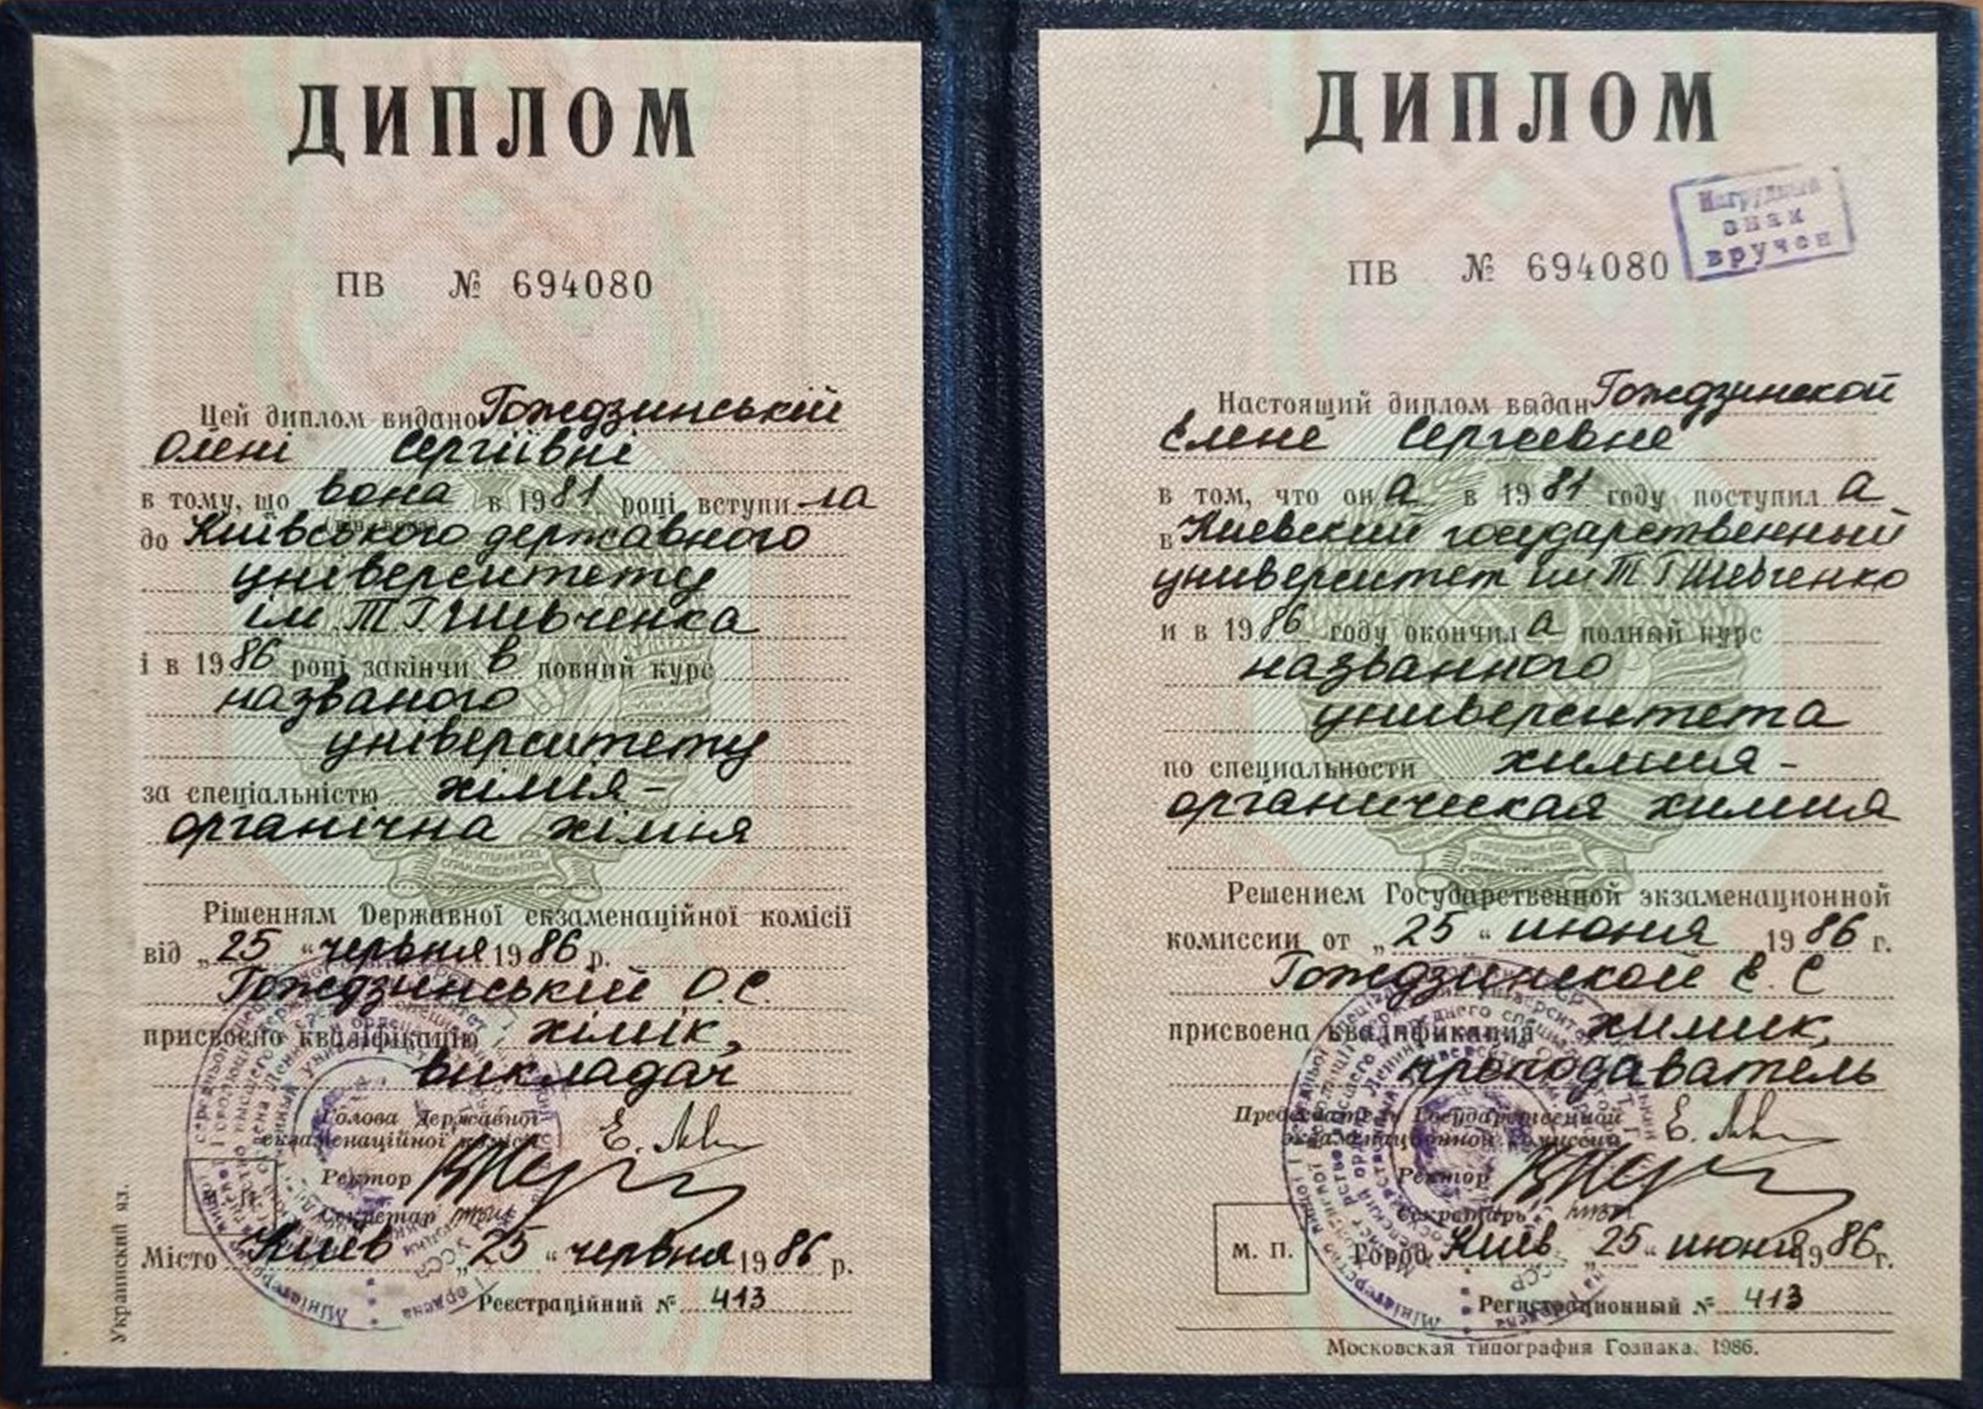 ДИПЛОМ
ПВ № 694080
Цей диплом видано Гождзинській
Олені Сергіївні
в тому, що вона в 1981 році вступила
до Київського державного
університету
ім Т.Г.Шевченка
і в 1986 році закінчив повний курс
названого
університету
за спеціальністю хімія-
органічна хімія
Рішенням Державної екзаменаційної комісії
від „25“ червня 1986 р.
Гождзинській О.С.
присвоєно кваліфікацію хімік,
викладач
Голова Державної
екзаменаційної комісії
Ректор
Секретар
М. П.
Місто Київ „25“ червня 1986 р.
Реєстраційний № 413
Украинский яз.
ДИПЛОМ
Нагрудный
знак
вручен
ПВ № 694080
Настоящий диплом выдан Гождзинской
Елене Сергеевне
в том, что она в 1981 году поступила
в Киевский государственный
университет им Т Г Шевченко
и в 1986 году окончила полный курс
названного
университета
по специальности химия-
органическая химия
Решением Государственной экзаменационной
комиссии от „25“ июня 1986 г.
Гождзинской Е. С
присвоена квалификация химик,
преподаватель
Председатель Государственной
экзаменационной комиссии
Ректор
Секретарь
М. П.
Город Киев „25“ июня 1986 г.
Регистрационный № 413
Московская типография Гознака. 1986.